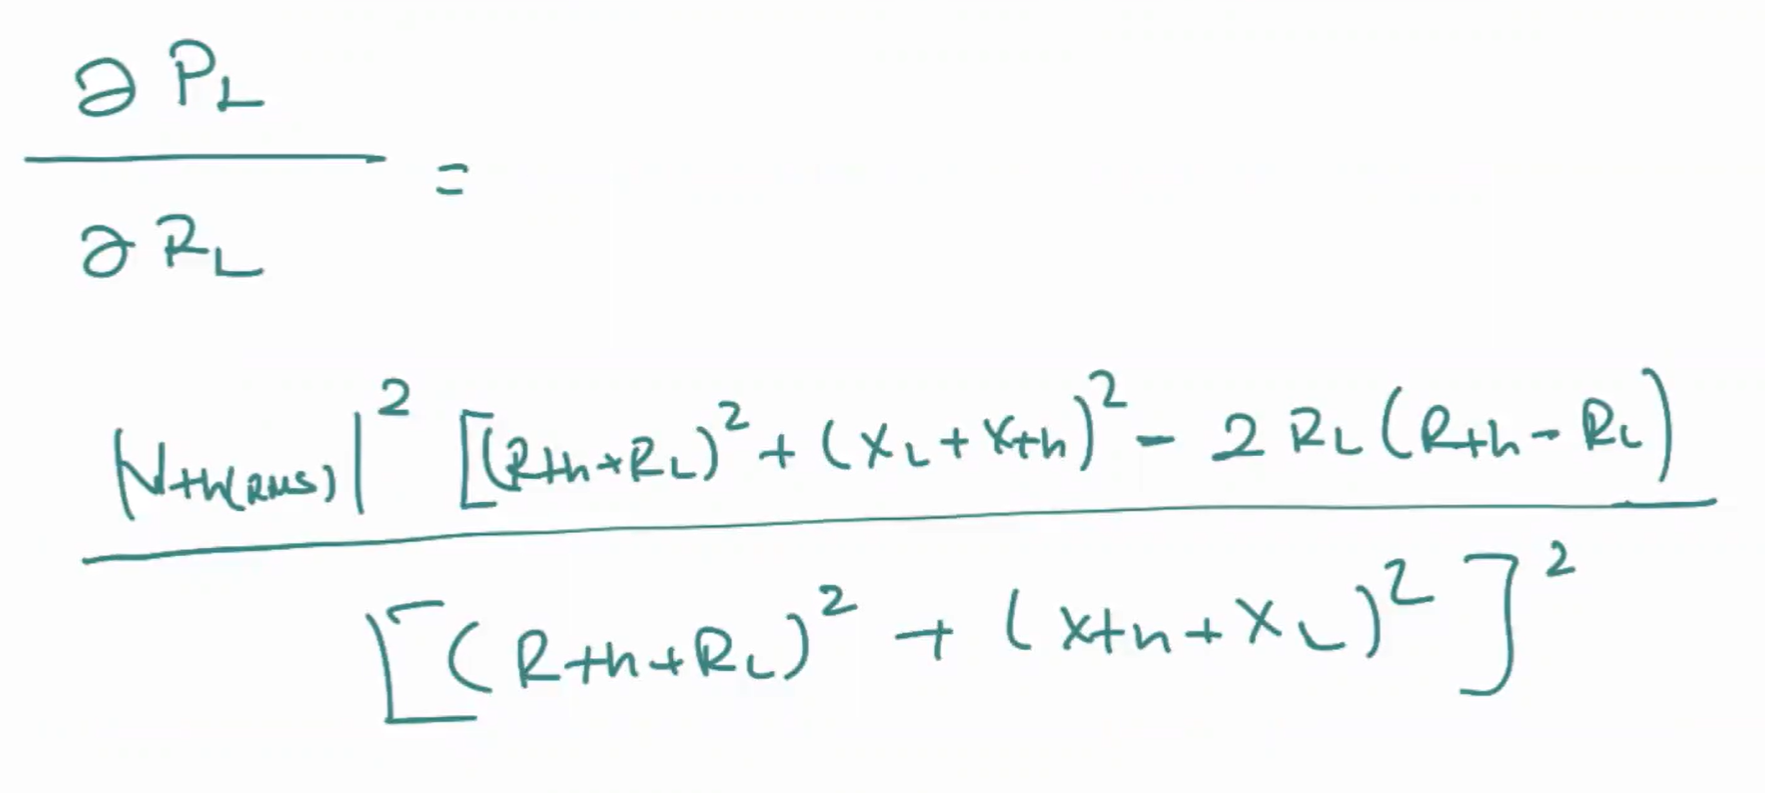 ∂ P_L / ∂ R_L =
|V_th(RMS)|^2 [(R_th + R_L)^2 + (X_L + X_th)^2 - 2 R_L (R_th - R_L)
/ [(R_th + R_L)^2 + (X_th + X_L)^2]^2